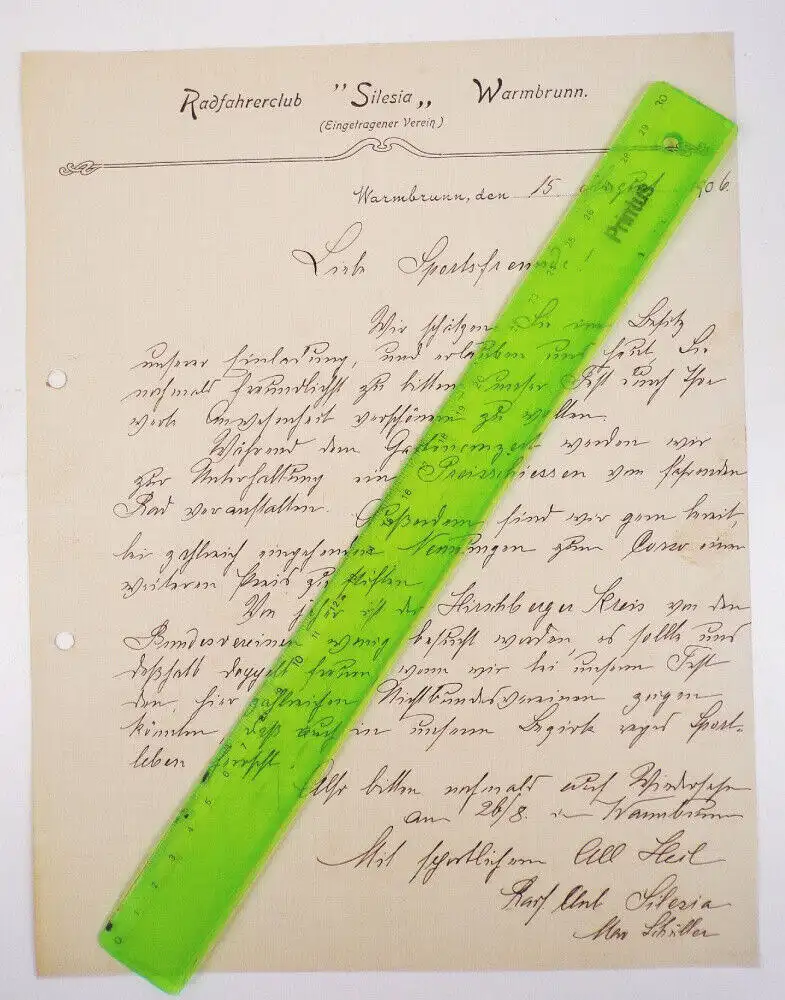 Radfahrerclub "Silesia„ Warmbrunn.
(Eingetragener Verein)
Warmbrunn, den 15 August 1906.
Liebe Sportsfreunde!
Wir schätzen Sie im Besitz
unserer Einladung, und erlauben uns heut Sie
nochmals freundlichst zu bitten unser Fest durch Ihre
werte Anwesenheit verschönern zu wollen.
Während dem werden wir
zur Unterhaltung ein Preisschiessen vom fahrenden
Rad veranstalten. Außerdem sind wir gern bereit,
bei zahlreich eingehenden Nennungen zum Corso einen
weiteren Preis zu stiften.
Von jeher ist der Hirschberger Kreis von den
Bundesvereinen wenig besucht worden es sollte uns
deßhalb doppelt freuen wenn wir bei unserem Fest
den hier zahlreichen Nichtbundesvereinen zeigen
könnten, daß auch in unserem Bezirk reges Sport-
leben herrscht.
Also bitten nochmals auf Wiedersehen
am 26/8. in Warmbrunn
Mit sportlichem All Heil
Radf Club Silesia
Max Schüller
Printus
0 1 2 3 4 5 6 7 8 9 10 11 12 16 18 19 20 23 24 25 26 27 28 29 30